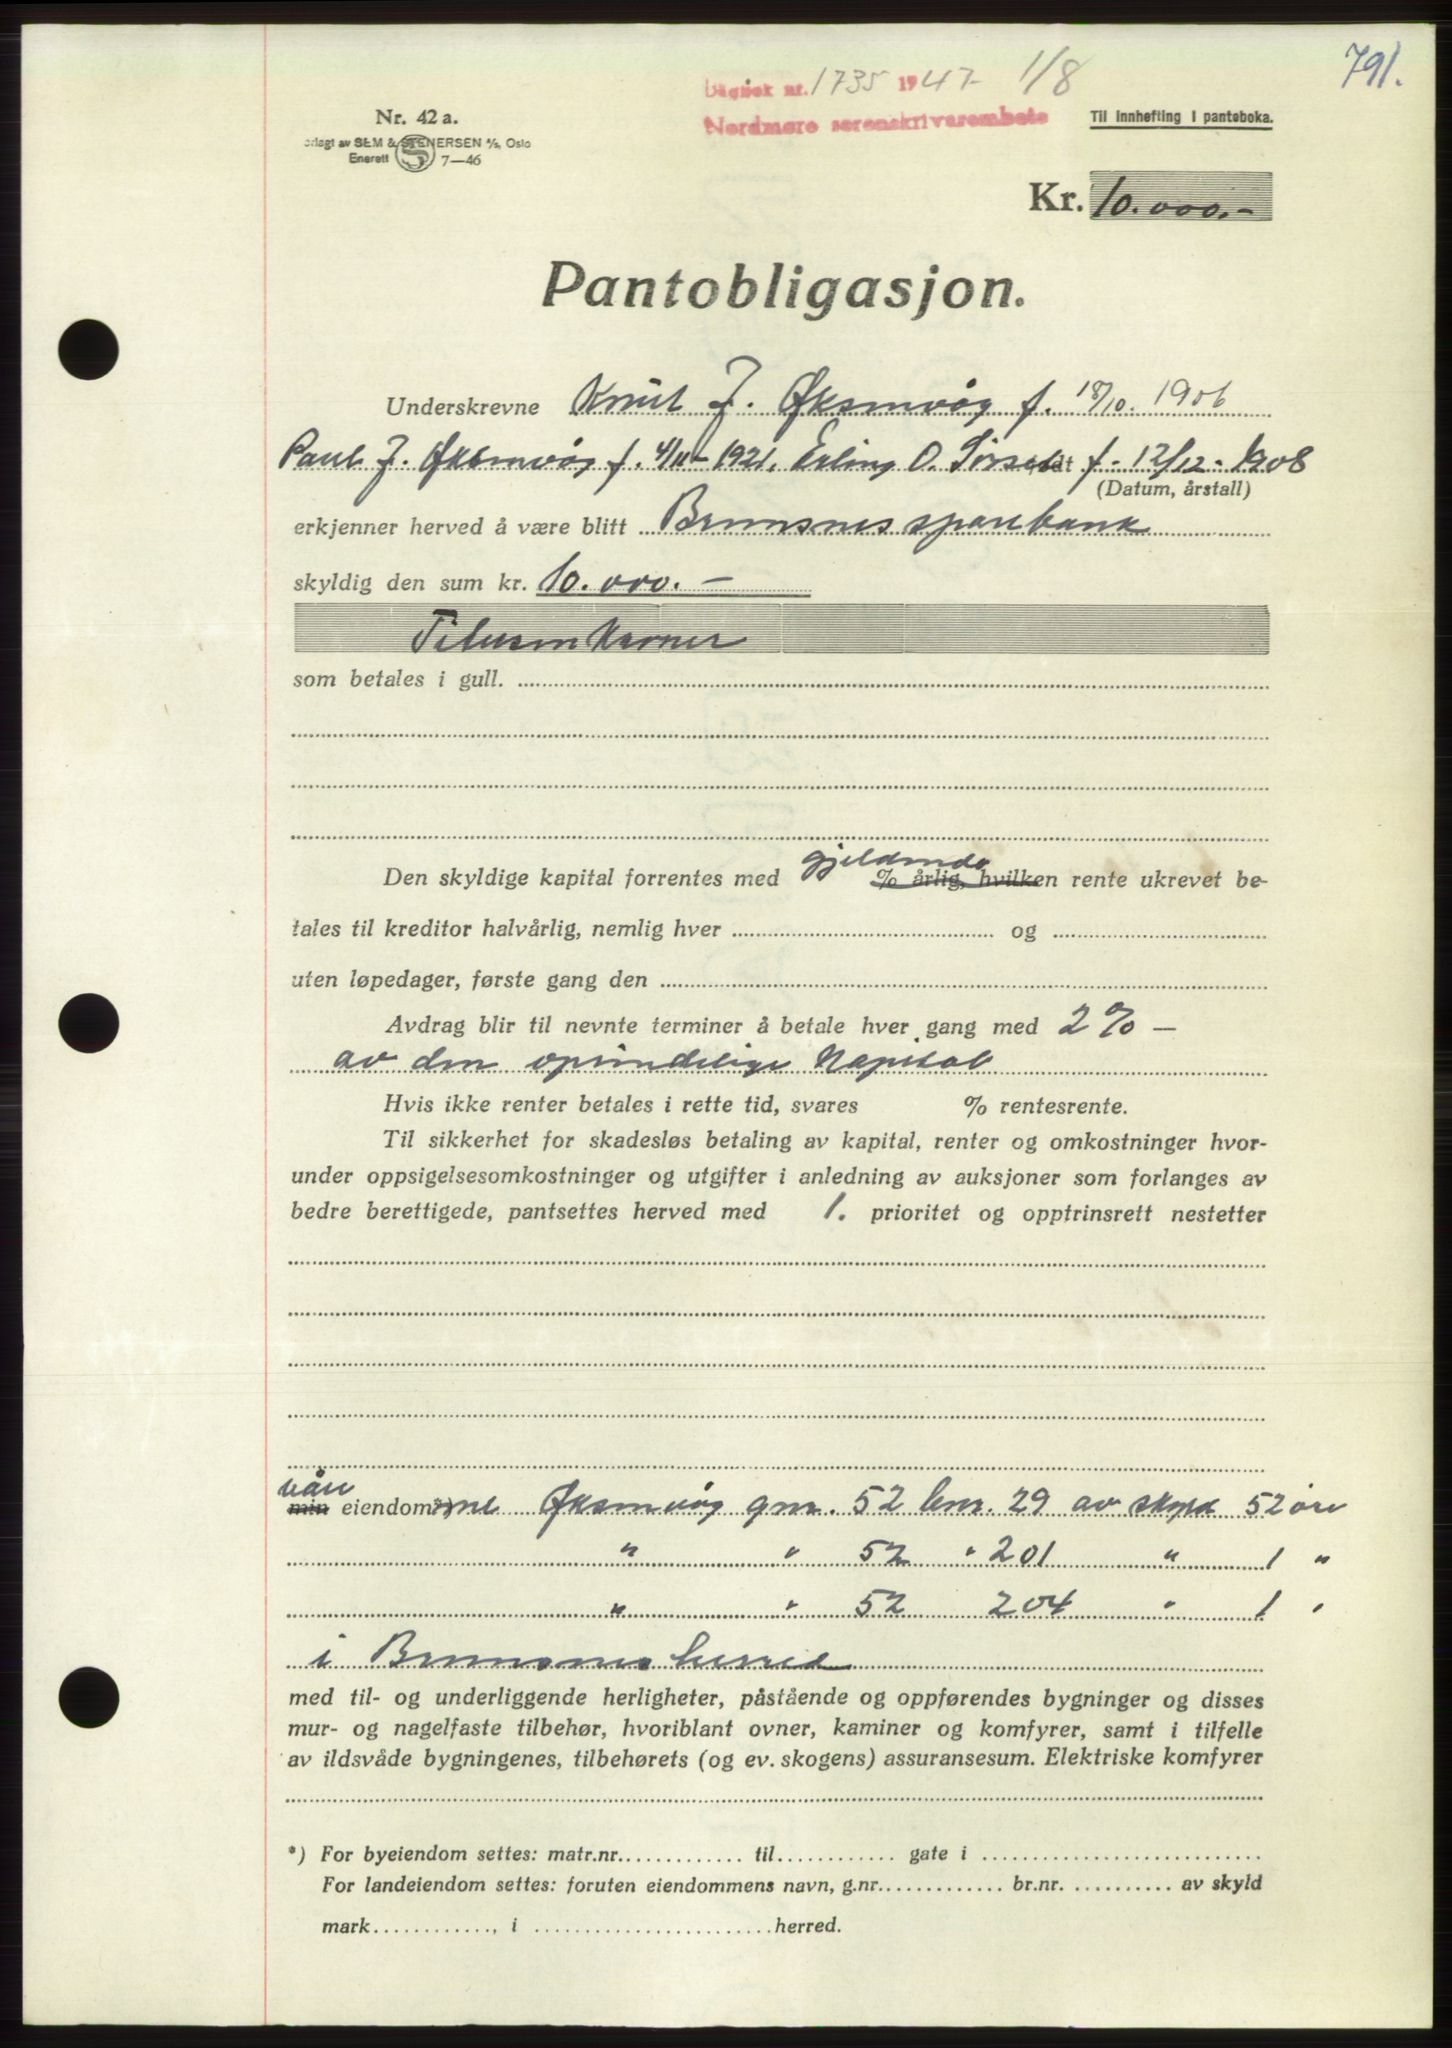 791.
Dagbok nr. 1735 1947 1/8
Nordmøre sorenskrivarembete
Nr. 42 a.
Til innhefting i panteboka.
orlagt av SEM & STENERSEN A/S, Oslo
Enerett S 7—46
Kr. 10.000.-
Pantobligasjon.
Underskrevne Knut J. Øksenvåg f. 18/10. 1906
Paul J. Øksenvåg f. 4/11 - 1921. Erling O. f. 12/12. 1908
(Datum, årstall)
erkjenner herved å være blitt Bremsnes sparebank
skyldig den sum kr. 10.000.-
Titusen kroner
som betales i gull.
Den skyldige kapital forrentes med gjeldende % årlig, hvilken rente ukrevet be-
tales til kreditor halvårlig, nemlig hver og
uten løpedager, første gang den
Avdrag blir til nevnte terminer å betale hver gang med 2% —
av den oprindelige kapital
Hvis ikke renter betales i rette tid, svares % rentesrente.
Til sikkerhet for skadesløs betaling av kapital, renter og omkostninger hvor-
under oppsigelsesomkostninger og utgifter i anledning av auksjoner som forlanges av
bedre berettigede, pantsettes herved med 1. prioritet og opptrinsrett nestetter
våre
min eiendom*)ene Øksenvåg gnr. 52 bnr. 29 av skyld 52 øre
" " 52 " 201 " 1 "
" " 52 204 " 1 "
i Bremsnes herred
med til- og underliggende herligheter, påstående og oppførendes bygninger og disses
mur- og nagelfaste tilbehør, hvoriblant ovner, kaminer og komfyrer, samt i tilfelle
av ildsvåde bygningenes, tilbehørets (og ev. skogens) assuransesum. Elektriske komfyrer
*) For byeiendom settes: matr.nr. til gate i
For landeiendom settes: foruten eiendommens navn, g.nr. br.nr. av skyld
mark , i herred.